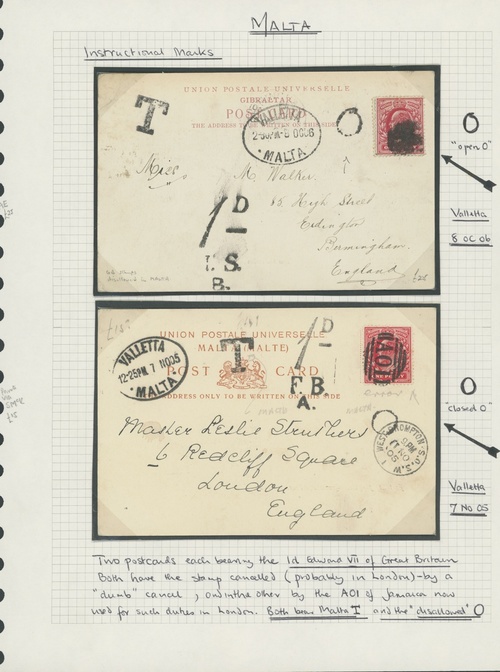 MALTA
Instructional Marks
UNION POSTALE UNIVERSELLE
GIBRALTAR
T
VALLETTA
MALTA
O
O
"open O"
Miss M. Walker.
1/D
85 High Street
Erdington
Birmingham.
England
S.
B.
Valletta
8 OC 06
£25
UNION POSTALE UNIVERSELLE
POST CARD
ADDRESS ONLY TO BE WRITTEN ON THIS SIDE
VALLETTA
12·25PM 7 NO05
MALTA
T
1/D
F.B
A.
A01
error
O
"closed O"
WEST BROMPTON S.O. S.W.
Master Leslie Struthers
6 Redcliff Square
London
England
MALTA
Valletta
7 NO 05
Two postcards each bearing the 1d Edward VII of Great Britain
Both have the stamp cancelled (probably in London)-by a
"dumb" cancel, and in the other by the A01 of Jamaica now
used for such duties in London. Both bear Malta T and the "disallowed" O